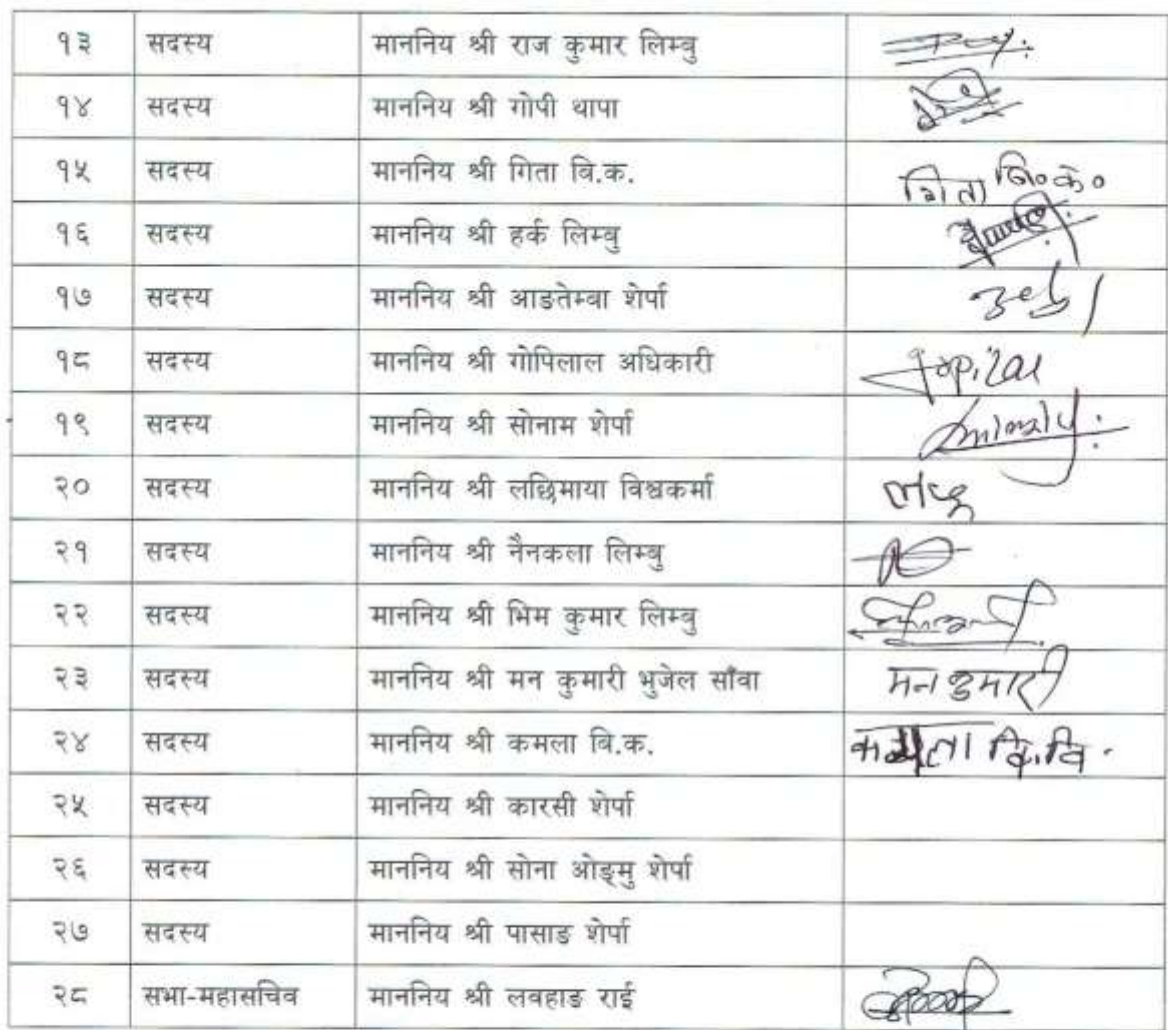 १३ सदस्य माननिय श्री राज कुमार लिम्बु
१४ सदस्य माननिय श्री गोपी थापा
१५ सदस्य माननिय श्री गिता बि.क. गिता बि० क०
१६ सदस्य माननिय श्री हर्क लिम्बु
१७ सदस्य माननिय श्री आङतेम्बा शेर्पा
१८ सदस्य माननिय श्री गोपिलाल अधिकारी Gopilal
१९ सदस्य माननिय श्री सोनाम शेर्पा
२० सदस्य माननिय श्री लछिमाया विश्वकर्मा
२१ सदस्य माननिय श्री नैनकला लिम्बु
२२ सदस्य माननिय श्री भिम कुमार लिम्बु
२३ सदस्य माननिय श्री मन कुमारी भुजेल साँवा मन कुमारी
२४ सदस्य माननिय श्री कमला बि.क. कमला
२५ सदस्य माननिय श्री कारसी शेर्पा
२६ सदस्य माननिय श्री सोना ओङ्मु शेर्पा
२७ सदस्य माननिय श्री पासाङ शेर्पा
२८ सभा-महासचिव माननिय श्री लवहाङ राई